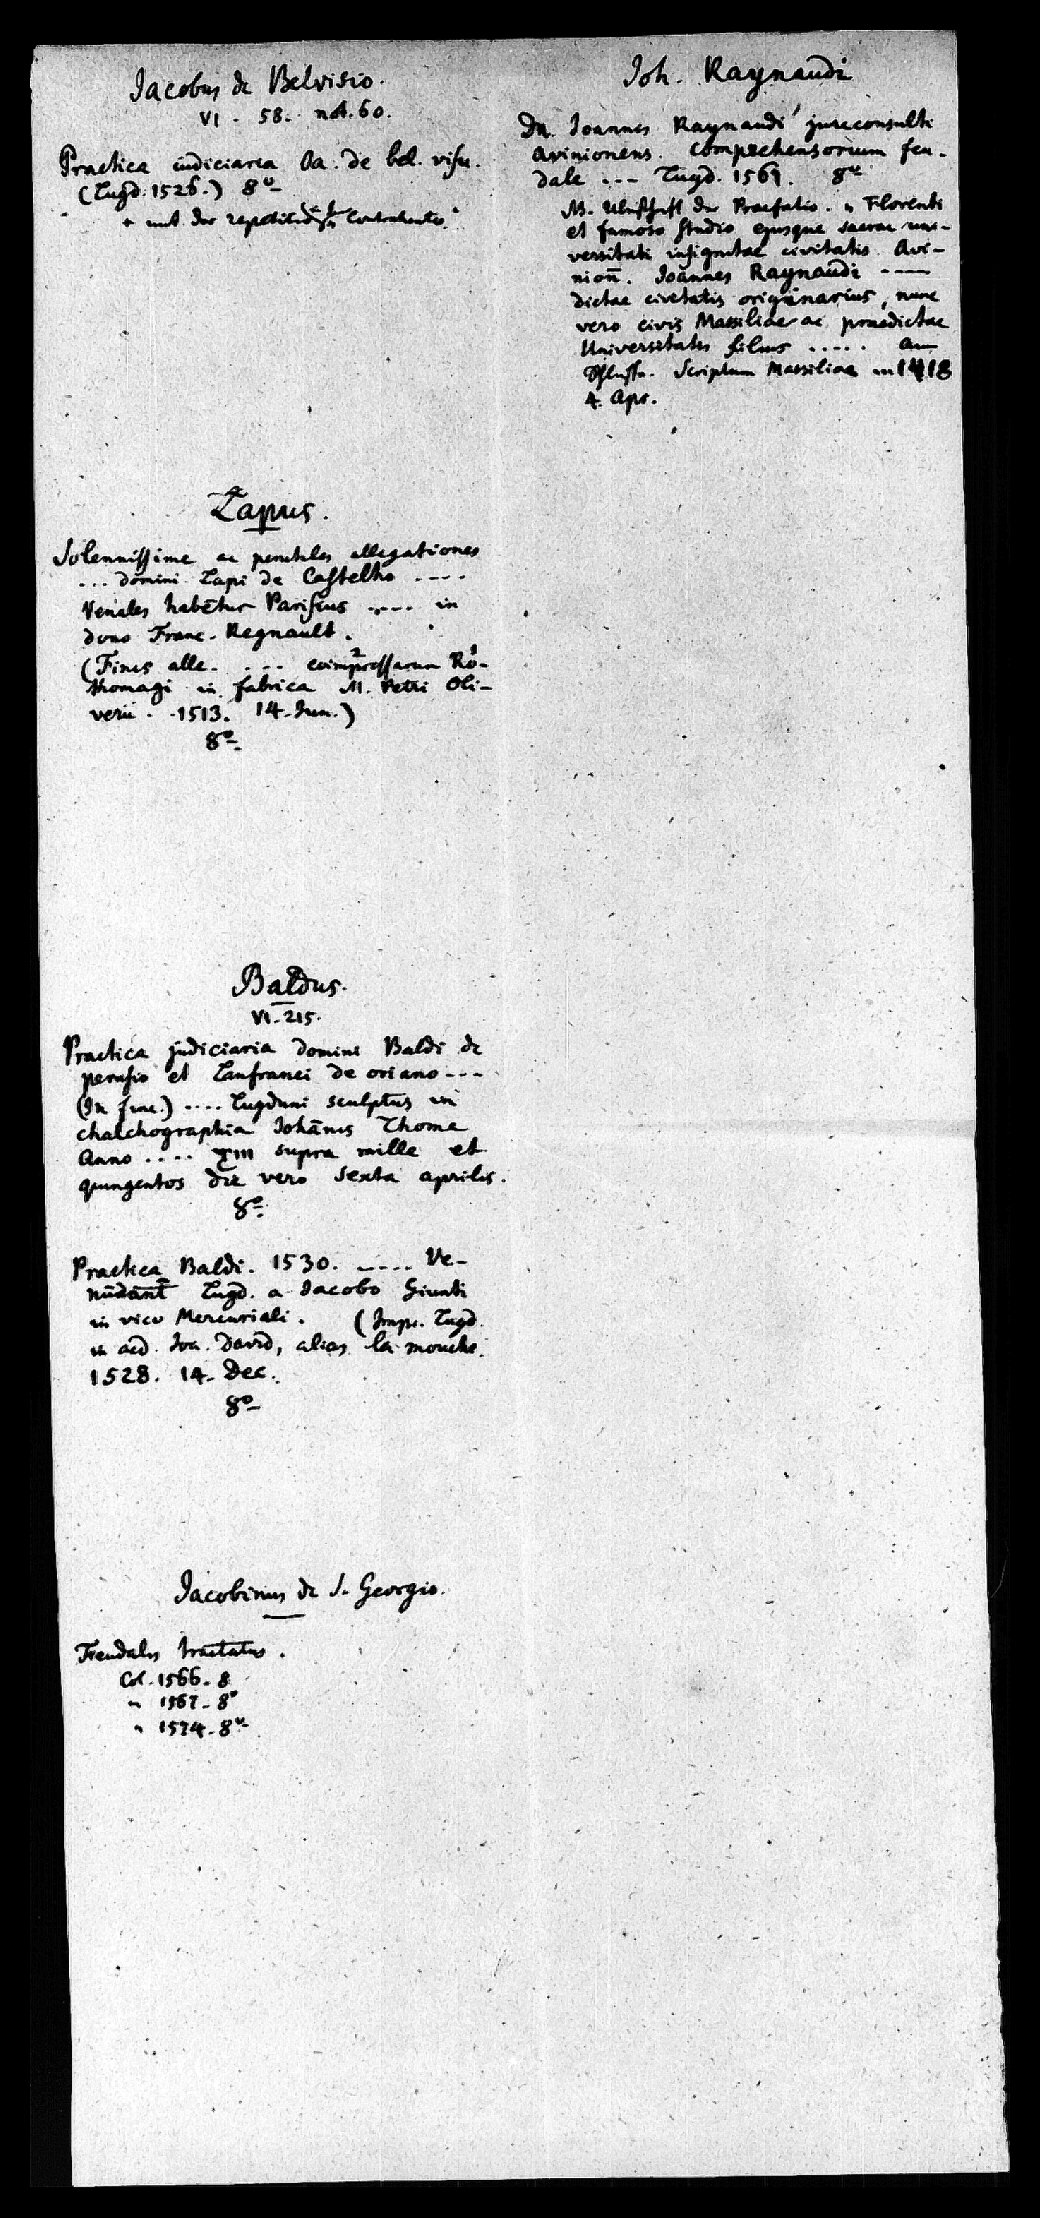 Jacobus de Belvisio.
VI. 58. not. 60.
Practica iudiciaria Ja. de bel. visu.
(Lugd. 1526.) 8º
+ mit der repetitio Contrahentes.
Lapus.
Solennissime ac perutiles allegationes
... domini Lapi de Castelho ....
Venales habētur Parisius ..... in
domo Franc. Regnault.
(Finis alle. .... coimpressarum Ro-
thomagi in fabrica M. Petri Oli-
verii. .1513. 14. Jun.)
8º
Baldus.
VI. 215.
Practica judiciaria Domini Baldi de
perusio et Lanfranci de oriano ---
(In fine.) .... Lugduni sculptus in
chalchographia Johānis Thome
Anno .... XIII supra mille et
quingentos die vero sexta aprilis.
8º
Practica Baldi. 1530. ..... Ve-
nūdant Lugd. a Jacobo Giunti
in vico Mercuriali. (Impr. Lugd.
in aed. Joa. David, alias la mouche.
1528. 14. Dec.
8º
Jacobinus de S. Georgio.
Feudalis tractatus.
Col. 1566. 8
" 1567. 8º
" 1574. 8º
Joh. Raynaudi
Dn. Joannis Raynaudi jureconsulti
Avinionens. Comprehensorium feu-
dale ... Lugd. 1569. 8º
Praefatio. " Florenti
et famoso studio ejusque sacrae uni-
versitati insignitae civitatis Avi-
nion̄. Joannes Raynaudi ----
dictae civitatis originarius, nunc
vero civis Massiliae ac praedictae
Universitatis filius ..... Am
Schlusse. Scriptum Massiliae in 1418
4. Apr.